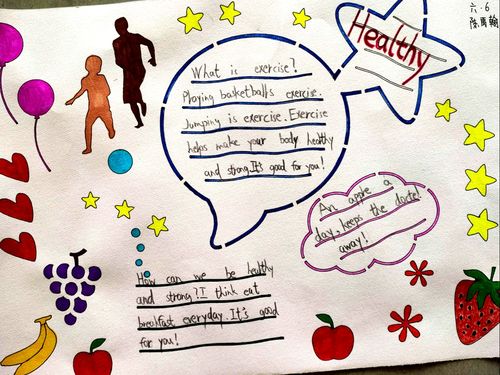 六.6
Healthy
What is exercise?
Playing basketball is exercise.
Jumping is exercise. Exercise
helps make your body healthy
and strong. It's good for you!
An apple a
day, keeps the doctel
away!
How can we be healthy
and strong? I think eat
breakfast everyday. It's good
for you!